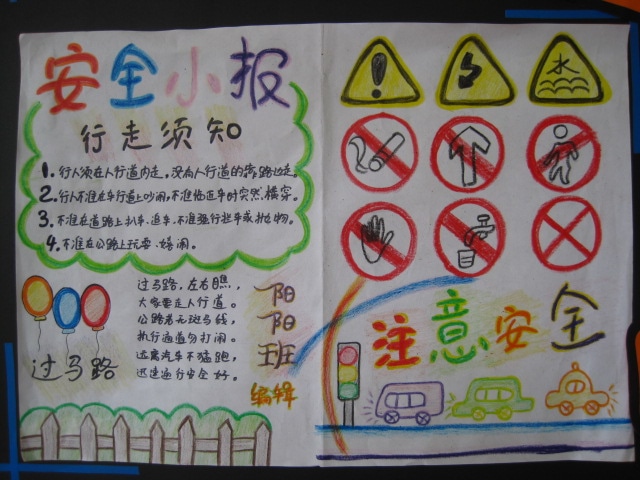 安全小报
行走须知
1. 行人须在人行道内走，没有人行道的靠路边走。
2. 行人不准在车行道上吵闹，不准临近车时突然横穿。
3. 不准在道路上扒车、追车、不准强行拦车或抛物。
4. 不准在公路上玩耍、嬉闹。
过马路
过马路，左右瞧，
大家要走人行道。
公路若无斑马线，
执行通道勿打闹。
远离汽车不猛跑，
迅速通行安全好。
一阳阳班
编辑
水
注意安全